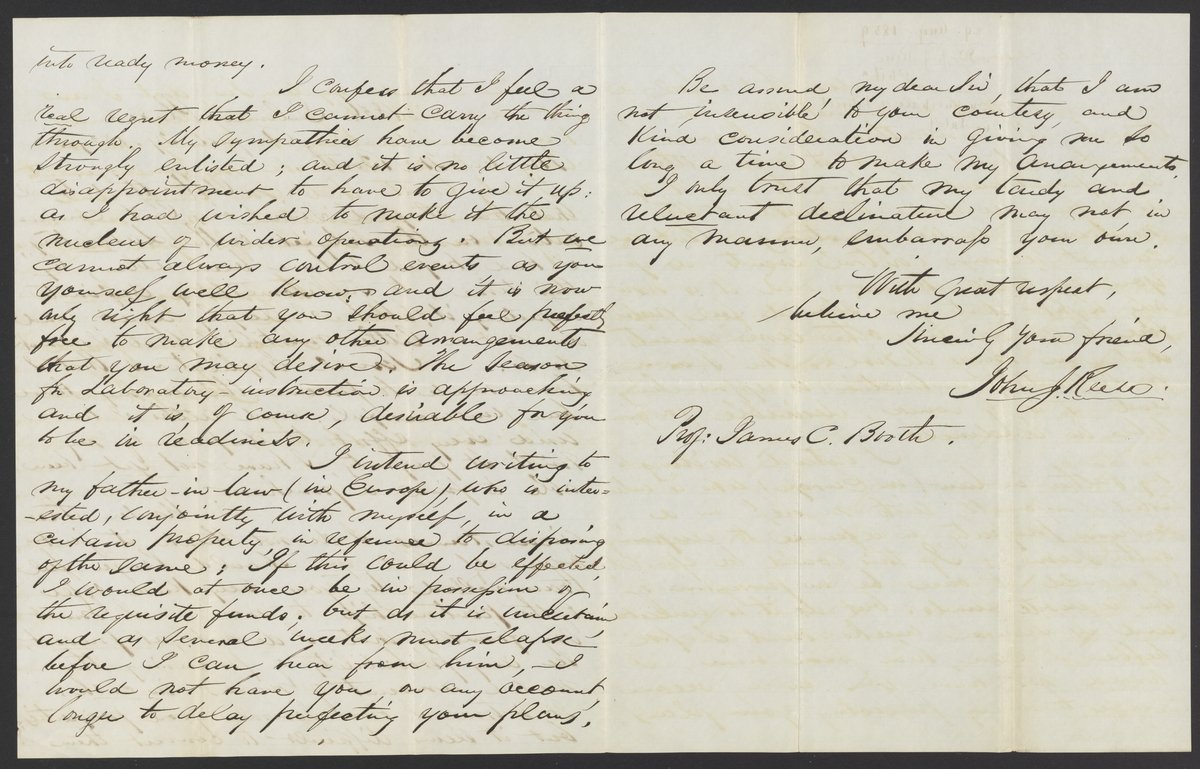 into ready money.
I confess that I feel a
real regret that I cannot carry the thing
through. My sympathies have become
strongly enlisted; and it is no little
disappointment to have to give it up:
as I had wished to make it the
nucleus of wider operations. But we
cannot always control events, as you
yourself well know, and it is now
only right that you should feel perfectly
free to make any other arrangements
that you may desire. The season
for Laboratory-instruction is approaching
and it is, of course, desirable for you
to be in readiness.
I intend writing to
my father-in-law (in Europe) who is inter=
-ested, conjointly with myself, in a
certain property, in reference to disposing
of the same; If this could be effected,
I would at once be in possession of
the requisite funds; but as it is uncertain,
and as several weeks must elapse
before I can hear from him, – I
would not have you, on any account
longer to delay perfecting your plans.
Be assured my dear Sir, that I am
not insensible to your courtesy, and
kind consideration in giving me so
long a time to make my arrangements.
I only trust that my tardy and
reluctant declination may not in
any manner, embarrass your own.
With great respect,
believe me
Sincerely your friend,
John J. Reese.
Prof: James C. Booth.